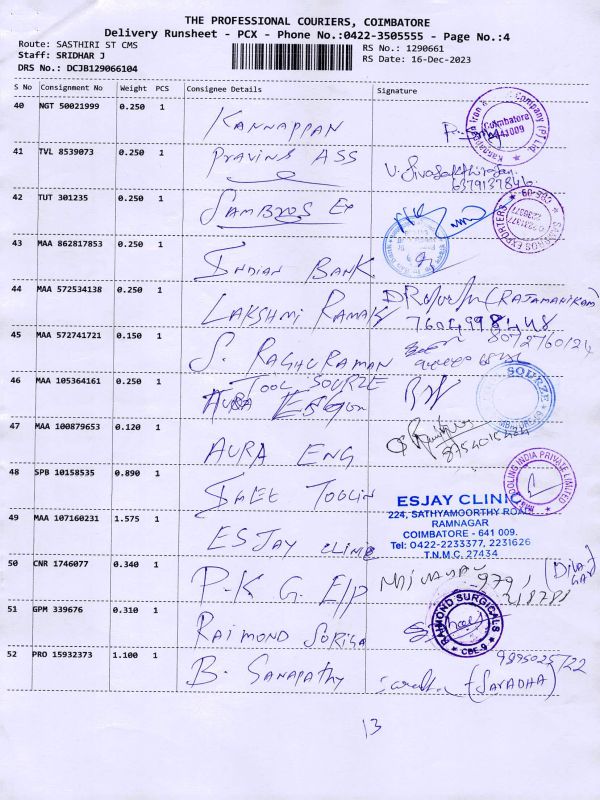 THE PROFESSIONAL COURIERS, COIMBATORE
Delivery Runsheet - PCX - Phone No.:0422-3505555 - Page No.:4
Route: SASTHIRI ST CMS
RS No.: 1290661
Staff: SRIDHAR J
RS Date: 16-Dec-2023
DRS No.: DCJB129066104
S No Consignment No Weight PCS Consignee Details Signature
40 NGT 50021999 0.250 1 KANNAPPAN
Coimbatore
41 TVL 8539073 0.250 1 PRAVINS ASS
42 TUT 301235 0.250 1 SAMBROS EX
43 MAA 862817853 0.250 1 INDIAN BANK
44 MAA 572534138 0.250 1 LAKSHMI (RAJAMANIKAM)
45 MAA 572741721 0.150 1 S. RAGHURAMAN 8072760124
46 MAA 105364161 0.250 1 TOOL SOURZE
AURA
SOURZE
47 MAA 100879653 0.120 1 AURA ENG
48 SPB 10158535 0.890 1 TOOLIN
TOOLING INDIA PRIVATE LIMITED
49 MAA 107160231 1.575 1 ESJAY CLINIC
ESJAY CLINIC
224, SATHYAMOORTHY ROAD
RAMNAGAR
COIMBATORE - 641 009.
Tel: 0422-2233377, 2231626
T.N.M.C. 27434
50 CNR 1746077 0.340 1 P.K.G. EIP
51 GPM 339676 0.310 1 RAIMOND
RAIMOND SURGICALS
CBE-9
52 PRO 15932373 1.100 1 B. Ganapathy (SARADHA)
13